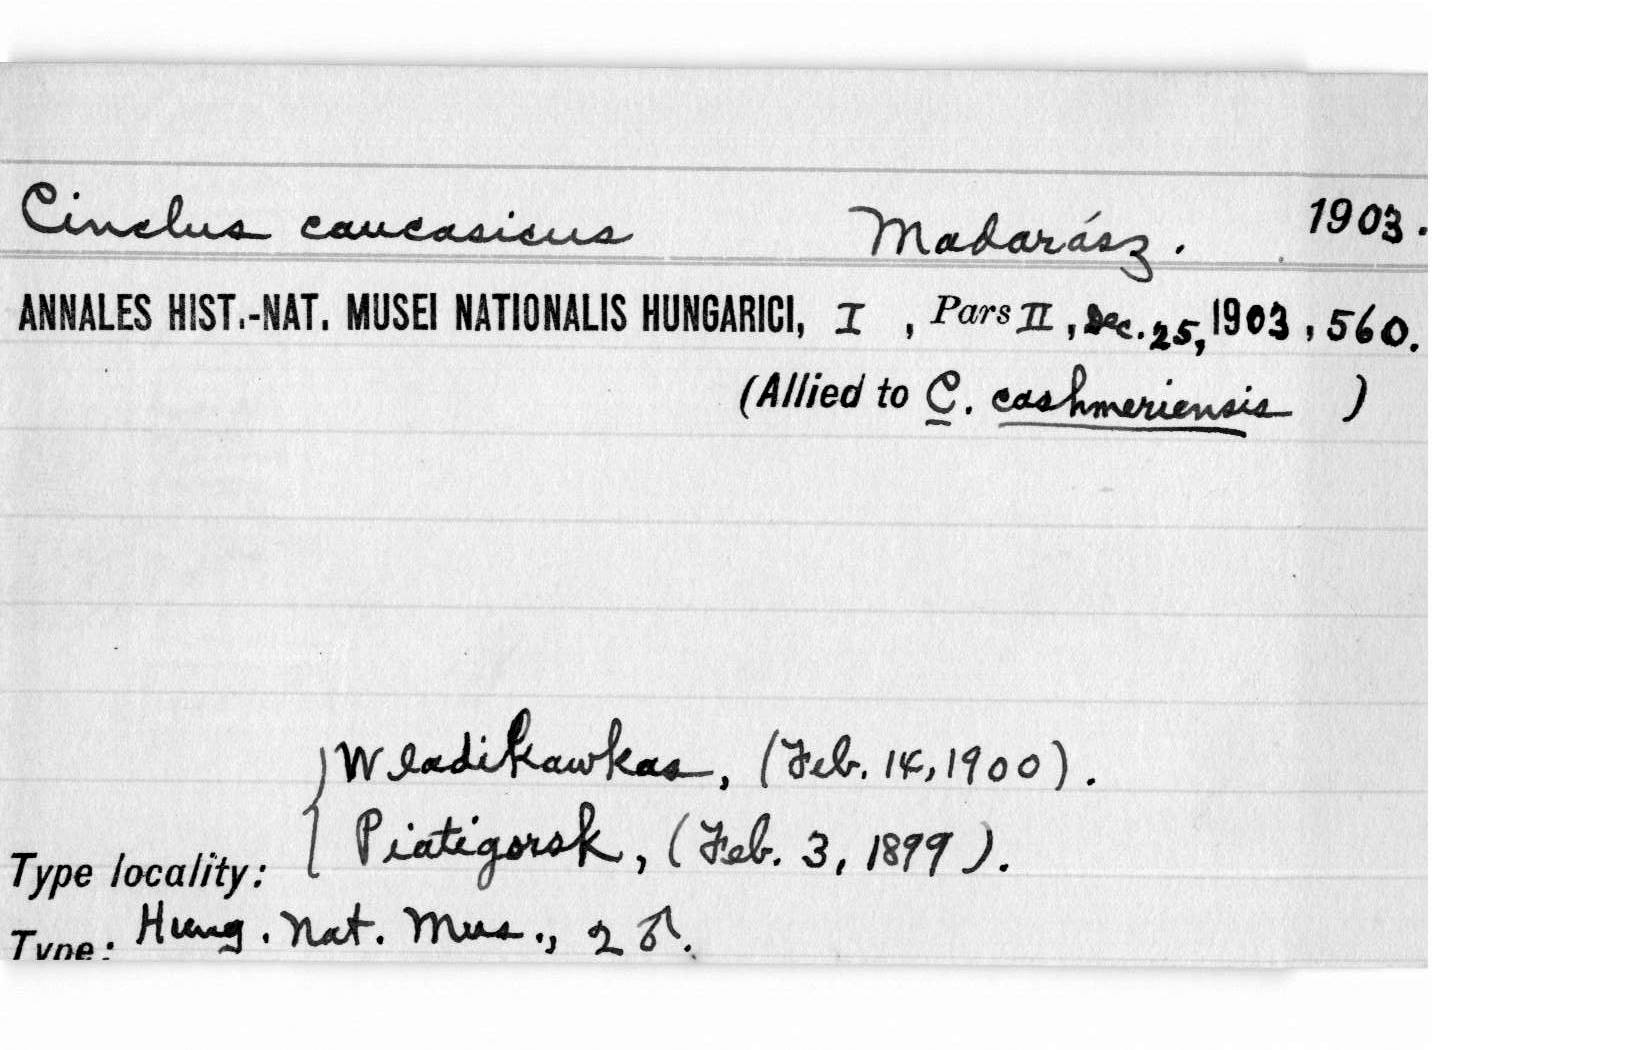 Cinclus caucasicus Madarász. 1903.
ANNALES HIST.-NAT. MUSEI NATIONALIS HUNGARICI, I, Pars II, Dec. 25, 1903, 560.
(Allied to C. cashmeriensis )
Wladikawkas, (Feb. 14, 1900).
Piatigorsk, (Feb. 3, 1899).
Type locality:
Type: Hung. Nat. Mus., 2 ♂.